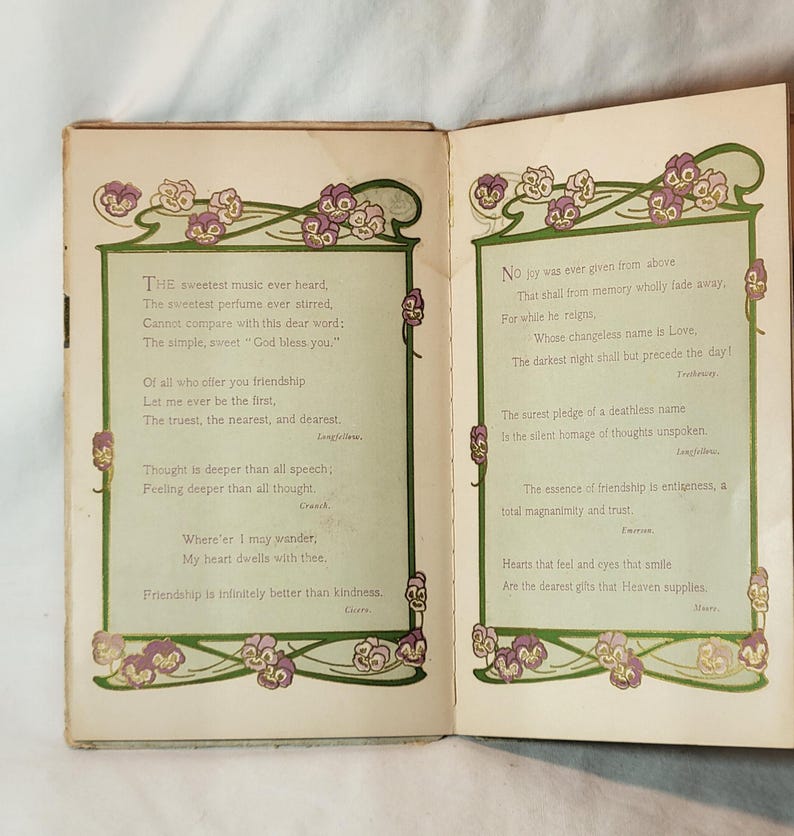 THE sweetest music ever heard,
The sweetest perfume ever stirred,
Cannot compare with this dear word:
The simple, sweet "God bless you."
Of all who offer you friendship
Let me ever be the first,
The truest, the nearest, and dearest.
Longfellow.
Thought is deeper than all speech;
Feeling deeper than all thought.
Cranch.
Where'er I may wander,
My heart dwells with thee.
Friendship is infinitely better than kindness.
Cicero.
NO joy was ever given from above
That shall from memory wholly fade away,
For while he reigns,
Whose changeless name is Love,
The darkest night shall but precede the day!
Trethewey.
The surest pledge of a deathless name
Is the silent homage of thoughts unspoken.
Longfellow.
The essence of friendship is entireness, a
total magnanimity and trust.
Emerson.
Hearts that feel and eyes that smile
Are the dearest gifts that Heaven supplies.
Moore.